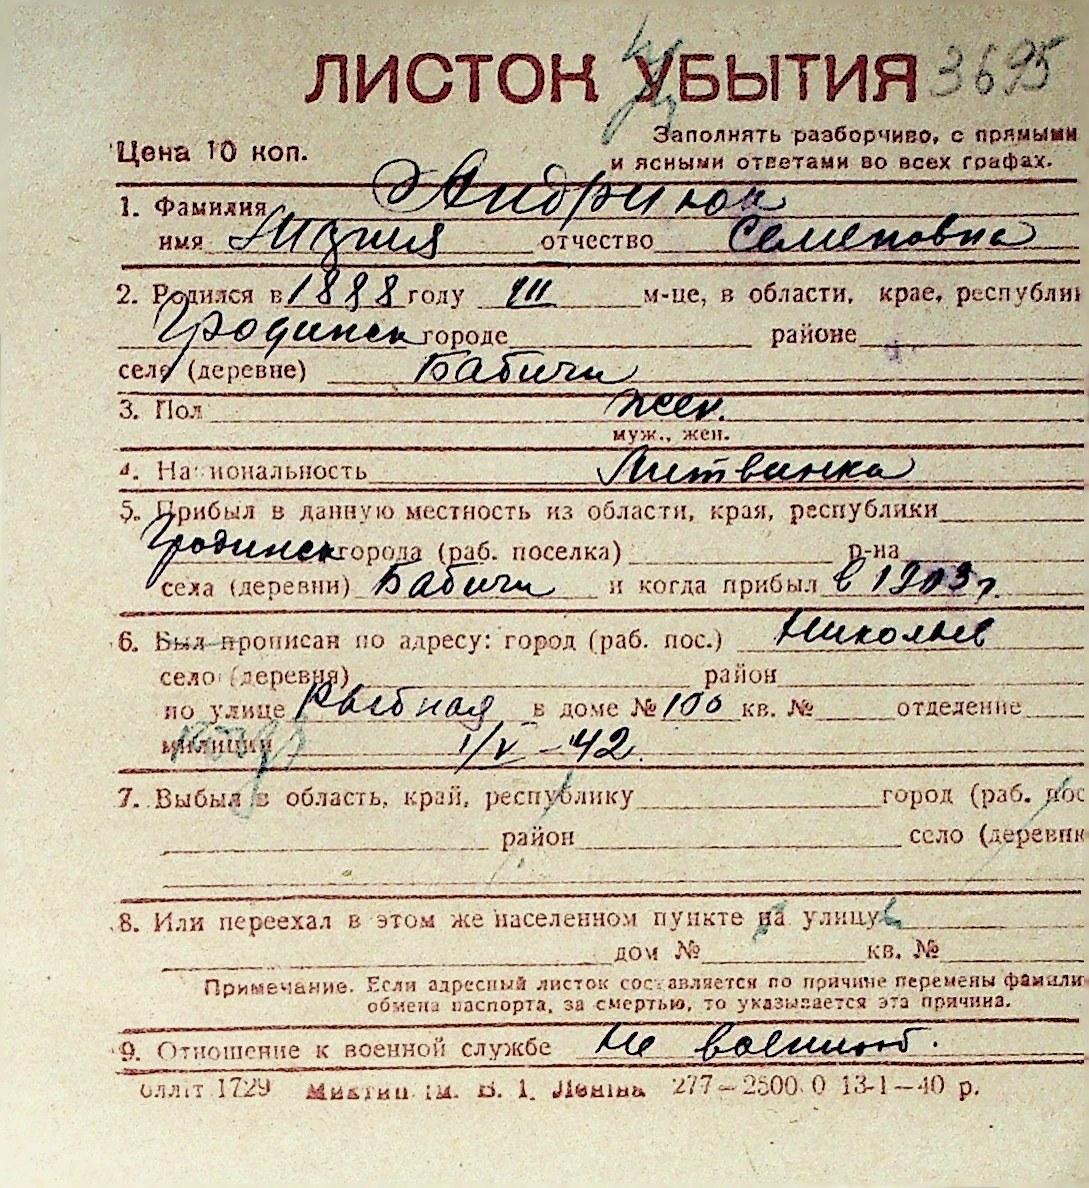 ЛИСТОК УБЫТИЯ 3695
Цена 10 коп.
Заполнять разборчиво, с прямыми
и ясными ответами во всех графах.
1. Фамилия Андриюк
имя отчество Семеновна
2. Родился в 1888 году III м-це, в области, крае, республи
Гродинск городе районе
селе (деревне) Бабичи
3. Пол жен.
муж., жен.
4. Национальность Литвинка
5. Прибыл в данную местность из области, края, республики
Гродинск города (раб. поселка) р-на
села (деревни) Бабичи и когда прибыл в 1913 г.
6. Был прописан по адресу: город (раб. пос.) Николаев
село (деревня) район
по улице Рыбная в доме № 100 кв. № отделение
милиции 1/V-42.
7. Выбыл в область, край, республику город (раб. пос
район село (деревня
8. Или переехал в этом же населенном пункте на улицу
дом № кв. №
Примечание. Если адресный листок составляется по причине перемены фамили
обмена паспорта, за смертью, то указывается эта причина.
9. Отношение к военной службе Не военнооб.
1729 ім. В. І. Леніна 277—2500.0 13-1—40 р.